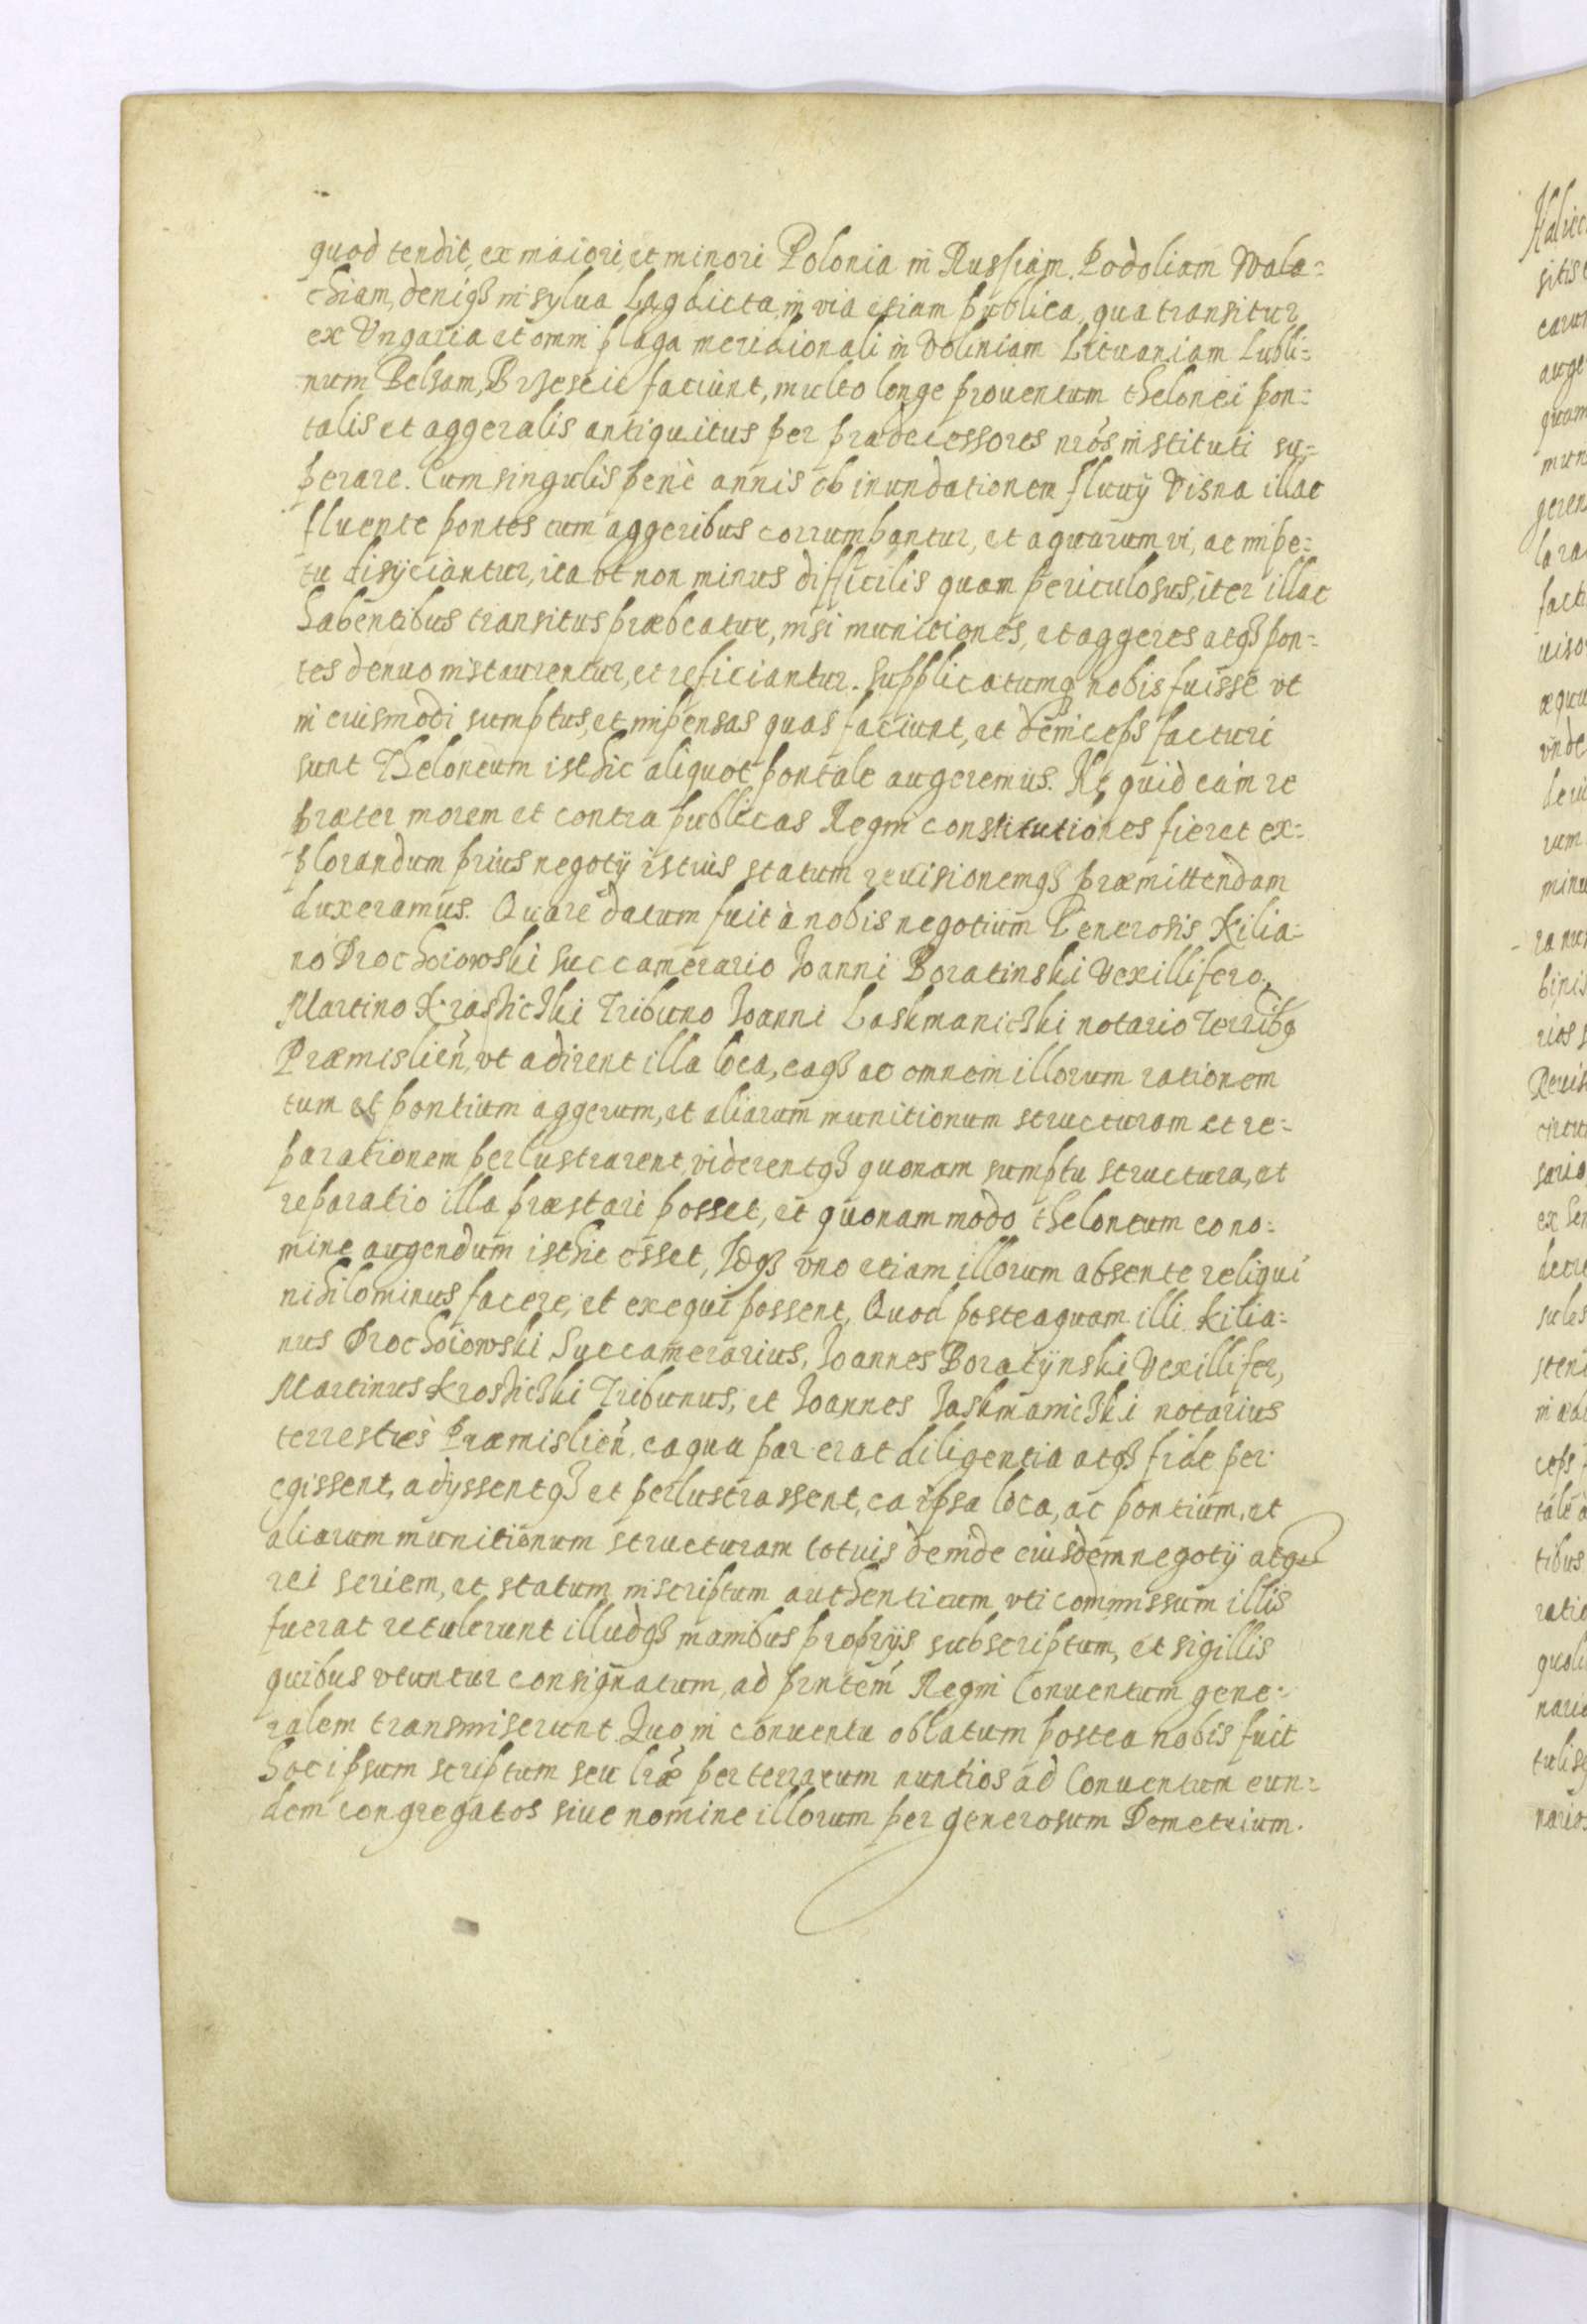 quod tendit, ex maiori, et minori Polonia in Russiam. Podoliam Wala=
chiam, deniqꝫ in sylua Lag dicta, in via etiam publica, qua transitur
ex Vngaria et omni plaga meridionali in Voliniam Lituaniam Lubli=
num Belsam, Brzescie faciunt, multo longe prouentum thelonei pon=
talis et aggeralis antiquitus per prædecessores nr̃os instituti su=
perare. Cum singulis penè annis ob inundationem fluuij Visna illac
fluente pontes cum aggeribus corrumpantur, et aquarum vi, ac impe=
tu disijciantur, ita vt non minus difficilis quam periculosus, iter illac
habentibus transitus præbeatur, nisi munitiones, et aggeres atqꝫ pon=
tes denuo instaurentur, et reficiantur. Supplicatumqꝫ nobis fuisse vt
in eiusmodi sumptus, et impensas quas faciunt, et deinceps facturi
sunt Theloneum isthic aliquot pontale augeremus. Ne quid ea in re
præter morem et contra publicas Regni constitutiones fieret ex=
plorandum prius negotij istius statum reuisionemqꝫ præmittendam
duxeramus. Quare datum fuit à nobis negotium Generosis Kilia=
no Drochoiowski Succamerario Joanni Boratinski Vexillifero,
Martino Krashicȝki Tribuno Joanni Laskmanicȝki notario Terrib9
Præmislien̄, vt adirent illa loca, eaqꝫ ac omnem illorum rationem
tum et pontium aggerum, et aliarum munitionum structuram et re=
parationem perlustrarent, viderentqꝫ quonam sumptu structura, et
reparatio illa præstari posset, et quonam modo theloneum eo no=
mine augendum isthic esset, Idqꝫ vno etiam illorum absente reliqui
nihilominus facere, et exequi possent, Quod posteaquam illi Kilia=
nus Drochoiowski Succamerarius, Joannes Boratÿnski Vexillifer,
Martinus Kroshicȝki Tribunus, et Joannes Jaskmanicȝki notarius
terrestres Præmislien̄, ea qua par erat diligentia atqꝫ fide per
egissent, adijssentqꝫ et perlustrassent, ea ipsa loca, ac pontium, et
aliarum munitionum structuram totius deinde eiusdem negotij atqꝫ
rei seriem, et statum in scriptum authenticum vti commissum illis
fuerat retulerunt illudqꝫ manibus proprijs subscriptum, et sigillis
quibus vtuntur consignatum, ad pr̃ntem Regni Conuentum gene=
ralem transmiserunt. Quo in conuentu oblatum postea nobis fuit
hoc ipsum scriptum seu lr̃æ per terrarum nuntios ad Conuentum eun=
dem congregatos siue nomine illorum per generosum Demetrium.